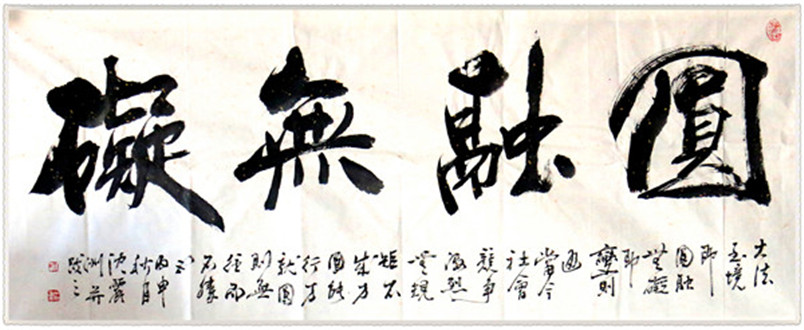 圓融無礙
大法
至境
即
圓融
無礙
即
變則
通
當今
社會
競爭
激烈
規
矩不
成方
圓能
行方
就圓
則無
而
不勝
丙申
秋月
洲并
跋之